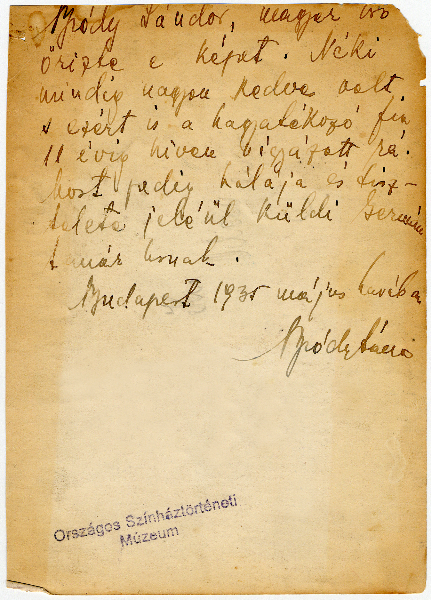 Bródy Sándor, magyar író
őrizte e képet. Néki
mindig nagyon kedves volt
s ezért is a hagyatékozó fia
11 évig híven vigyázott rá.
Most pedig hálája és tisz-
telete jeléül küldi Germán
tanár úrnak.
Budapest 1935 május havában
Bródy
Országos Színháztörténeti
Múzeum